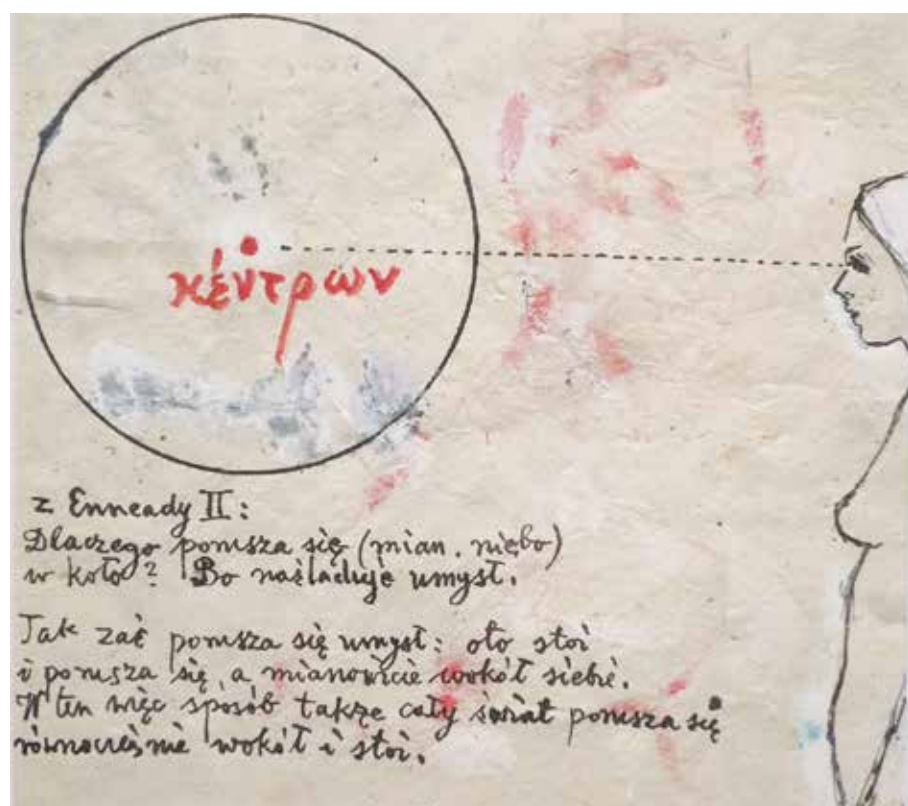 κέντρων
z Enneady II:
Dlaczego porusza się (mian. niebo)
w koło? Bo naśladuje umysł.
Tak zaś porusza się umysł: oto stoi
i porusza się, a mianowicie wokół siebie.
W ten więc sposób także cały świat porusza się
równocześnie wokół i stoi.